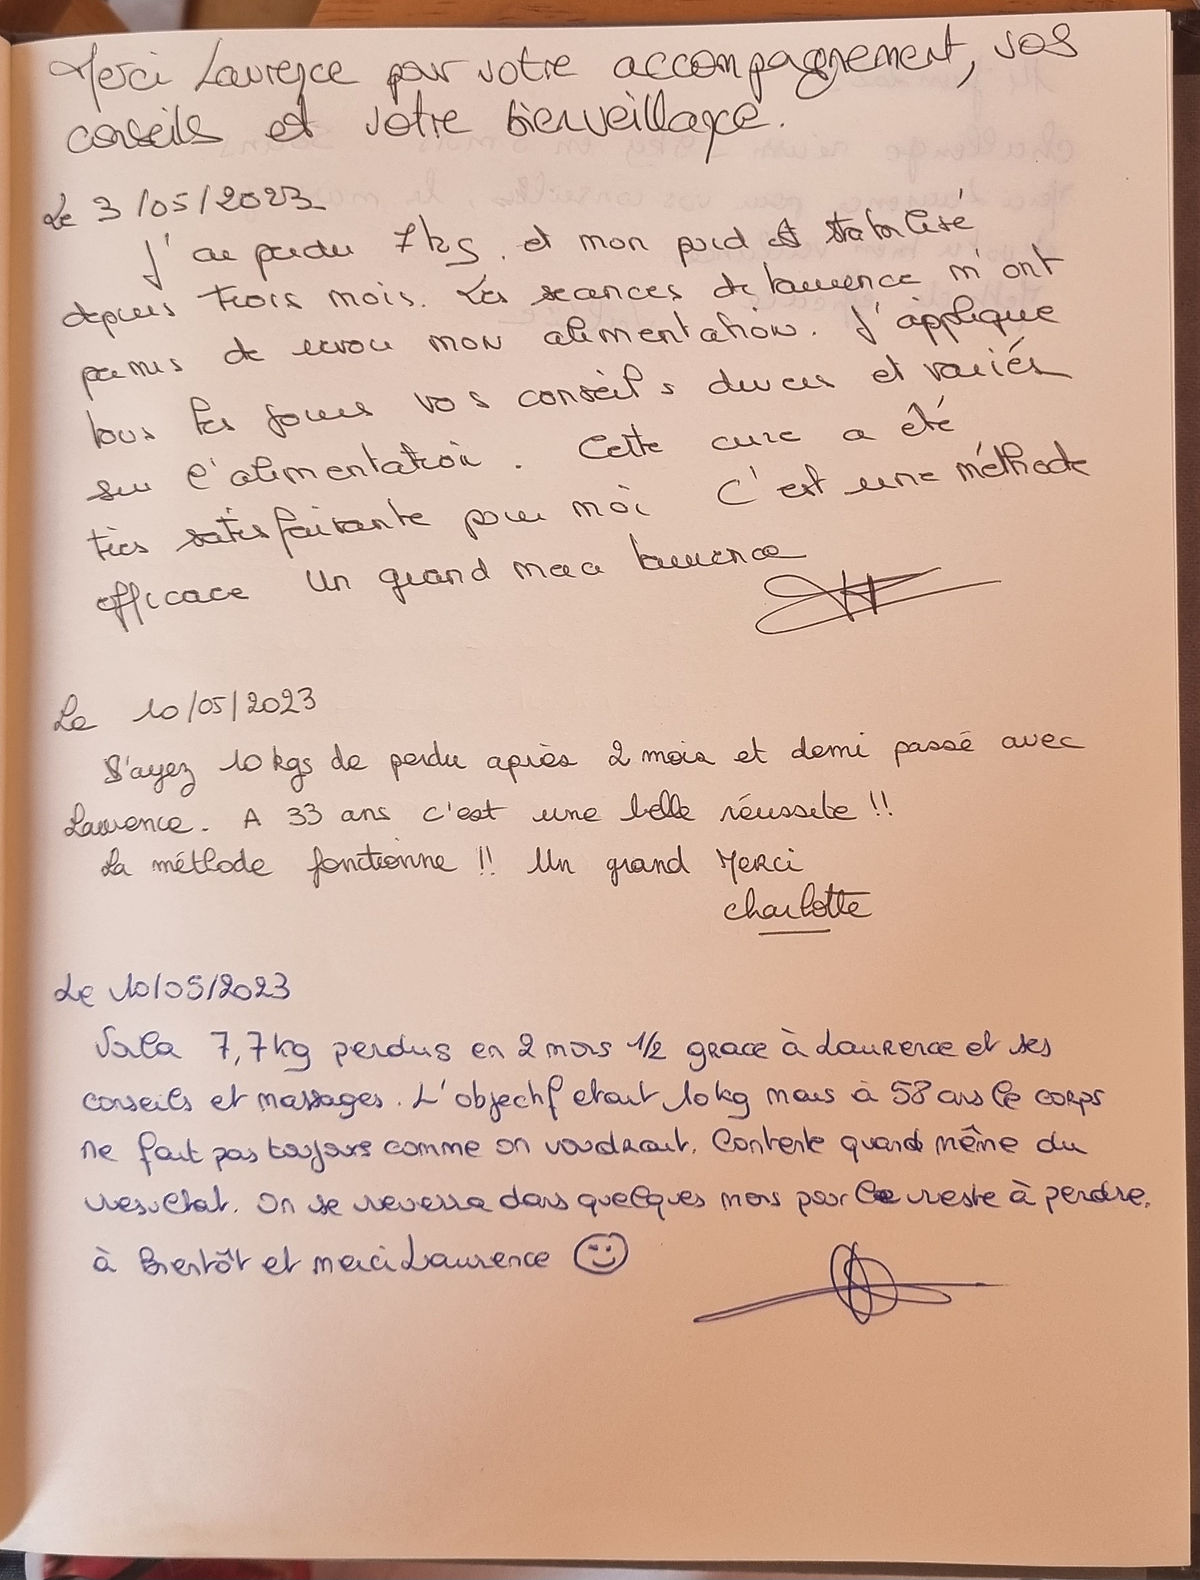 Merci Laurence pour votre accompagnement, vos
conseils et votre bienveillance.
Le 3/05/2023
J'ai perdu 7kg. et mon poid est stabilisé
depuis trois mois. Les séances de laurence m'ont
permis de revoir mon alimentation. J'applique
tous les jours vos conseils divers et variés
sur l'alimentation. Cette cure a été
très satisfaisante pour moi C'est une méthode
efficace Un grand merci laurence
Le 10/05/2023
S'ayez 10 kgs de perdu après 2 mois et demi passé avec
Laurence. A 33 ans c'est une belle réussite !!
La méthode fonctionne !! Un grand Merci
Charlotte
Le 10/05/2023
Voila 7,7kg perdus en 2 mois 1/2 grace à Laurence et ses
conseils et massages. L'objectif etait 10kg mais à 58 ans le corps
ne fait pas toujours comme on voudrait. Contente quand même du
resultat. On se reverra dans quelques mois pour le reste à perdre.
à Bientôt et merci Laurence